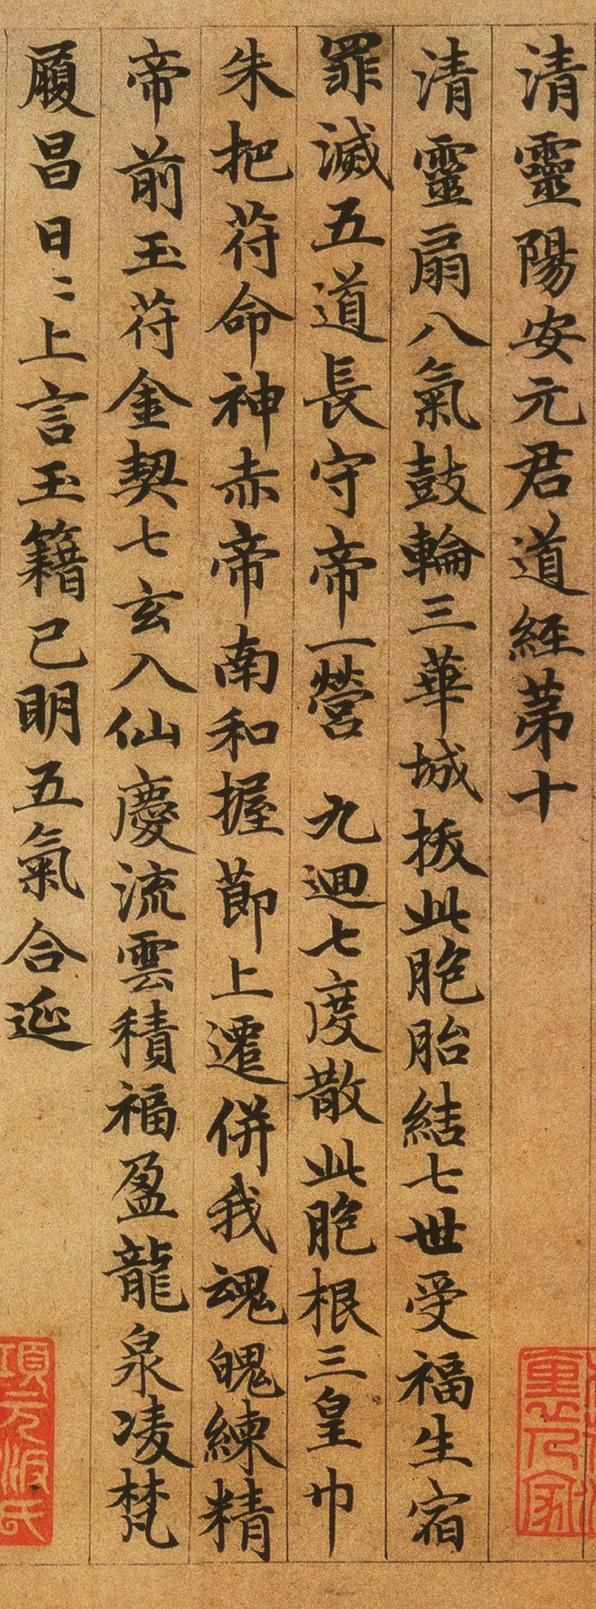 清靈陽安元君道經第十
清靈扇八氣鼓輪三華城拔此胞胎結七世受福生宿
罪滅五道長守帝一營　九迴七度散此胞根三皇巾
朱把苻命神赤帝南和握莭上遷併我魂魄練精
帝前玉苻金契七玄入仙慶流雲積福盈龍泉凌梵
履昌日〻上言玉籍已明五氣合延